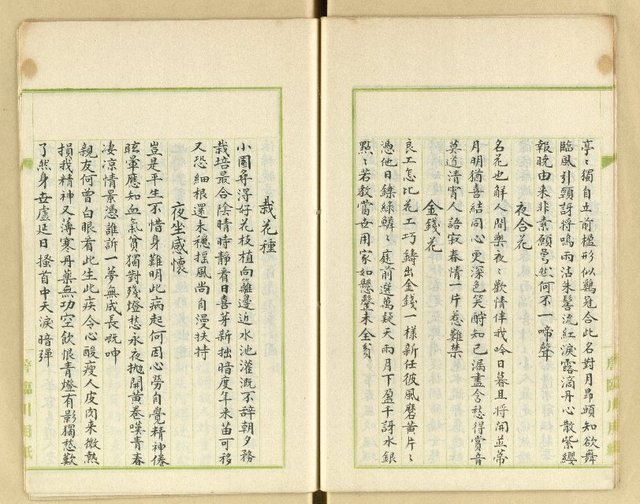 亭〻獨自立前楹形似鷄冠合此名對月昂頭知欲舞
臨風引頸訝將鳴雨沾朱髻流紅淚露滴丹心散紫纓
報曉由来非素願
何不一啼聲
夜合花
名花也解人間樂夜〻歡情伴我吟日暮且將開並蒂
月明猶喜結同心更深色笑酧知己漏盡含愁得賞音
莫道清宵人語寂春情一片惹難禁
金錢花
良工怎比花工巧鑄出金錢一樣新任彼風磨黃片〻
憑他日鍊綠鱗〻庭前選萬疑天雨月下盈千訝水銀
點〻若教當世用家如懸罄未全貧
栽花種
小園尋得好花枝植向籬邊近水池灌溉不辞朝夕務
栽培最合陰晴時靜看日喜芽新拙暗度年来苗可移
又恐細根還未穩搖風尚自漫扶持
夜坐感懷
豈是平生不惜身難明此病起何因心勞自覺精神倦
眩暈應知血氣貧獨對殘燈愁永夜拋開黃卷嘆青春
淒凉情景憑誰訴一夢無成長呻
親友何曾白眼看此生此疾令心酸瘦人皮肉来微熱
損我精神又薄寒丹藥無功空飲恨青燈有影獨愁歎
了然身世虛延日搔首中天淚暗彈